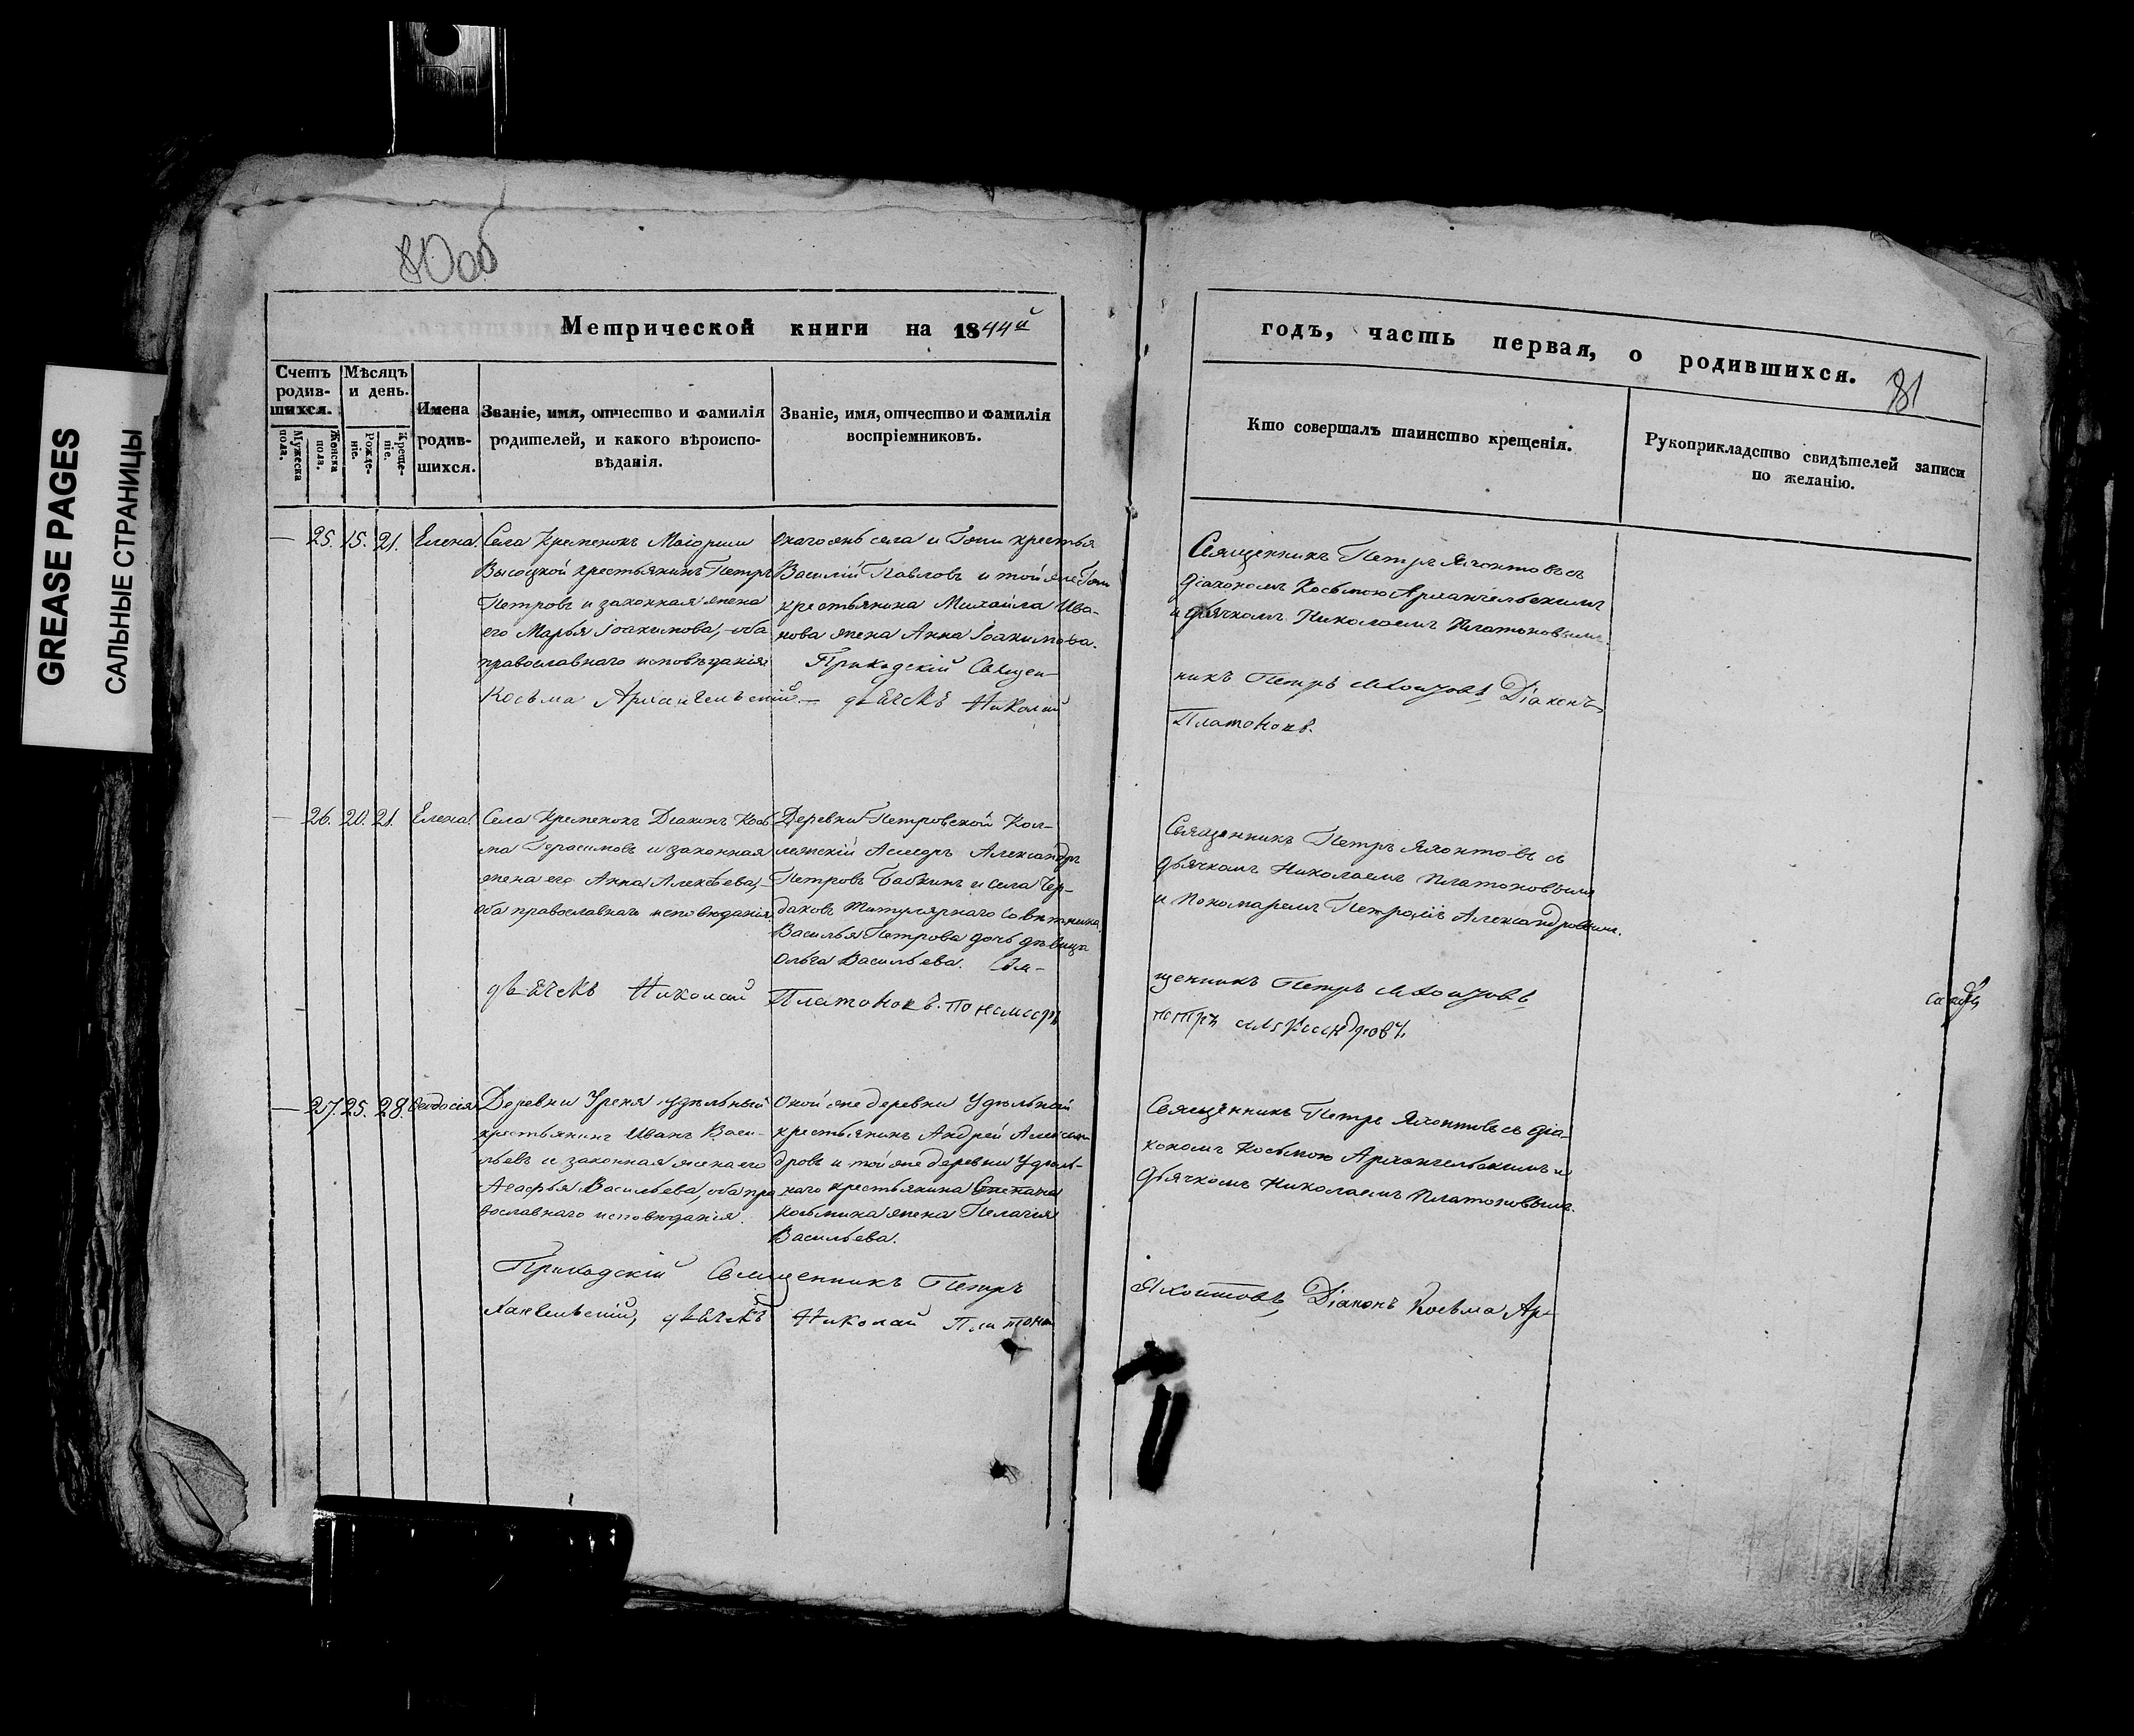 GREASE PAGES
САЛЬНЫЕ СТРАНИЦЫ
80об
Метрической книги на 1844й
Счетъ родив-шихся.
Мужеска пола.
Женска пола.
Мѣсяцъ и день.
Рожде-ніе.
Креще-ніе.
Имена родив-шихся.
Званіе, имя, отчество и фамилія
родителей, и какого вѣроиспо-
вѣданія.
Званіе, имя, отчество и фамилія
воспріемниковъ.
— 25. 15. 21. Елена.
Села Кременокъ Маіорши
Высоцкой крестьянинъ Петръ
Петровъ и законная жена
его Марья Іоакимова, оба
православнаго исповѣданія
Онагожъ села и Гпжи крестья
Василій Павловъ и той же Гпжи
крестьянина Михаила Ива-
нова жена Анна Іоакимова.
Приходскій Священ-
Косьма Архангельскій — дьячекъ Николай
— 26. 20. 21. Елена.
Села Кременокъ Діаконъ Кось
ма Герасимовъ и законная
жена его Анна Алексѣева,
оба православнаго исповѣданія
Деревни Петровской Кол-
лежскій Асесоръ Александръ
Петровъ Бабкинъ и села Чер-
даковъ Титулярнаго Совѣтника
Василья Петрова дочь дѣвица
Ольга Васильева. Свя-
дьячекъ Николай Платоновъ. пономарь
— 27. 25. 28. Ѳеодосія
Деревни Уреня удѣльный
крестьянинъ Иванъ Васи-
льевъ и законная жена его
Агафья Васильева, оба пра
вославнаго исповѣданія.
Оной же деревни Удѣльный
крестьянинъ Андрей Алексан
дровъ и той же деревни Удѣль-
наго крестьянина Степана
Косьмина жена Пелагея
Васильева.
Приходскій Священникъ Петръ
хангельскій, дьячекъ Николай Платонов
годъ, часть первая, о родившихся.
81
Кто совершалъ таинство крещенія.
Рукоприкладство свидѣтелей записи
по желанію.
Священникъ Петръ Яхонтовъ съ
діакономъ Косьмою Архангельскимъ
и дьячкомъ Николаемъ Платоновымъ.
никъ Петръ Яхонтовъ Діаконъ
Платоновъ.
Священникъ Петръ Яхонтовъ съ
дьячкомъ Николаемъ Платоновымъ
и Пономаремъ Петромъ Александровымъ.
щенникъ Петръ Яхонтовъ
петръ александровъ
Священникъ Петръ Яхонтовъ съ діа-
кономъ Косьмою Архангельскимъ и
дьячкомъ Николаемъ Платоновымъ.
Яхонтовъ, Діаконъ Косьма Ар-